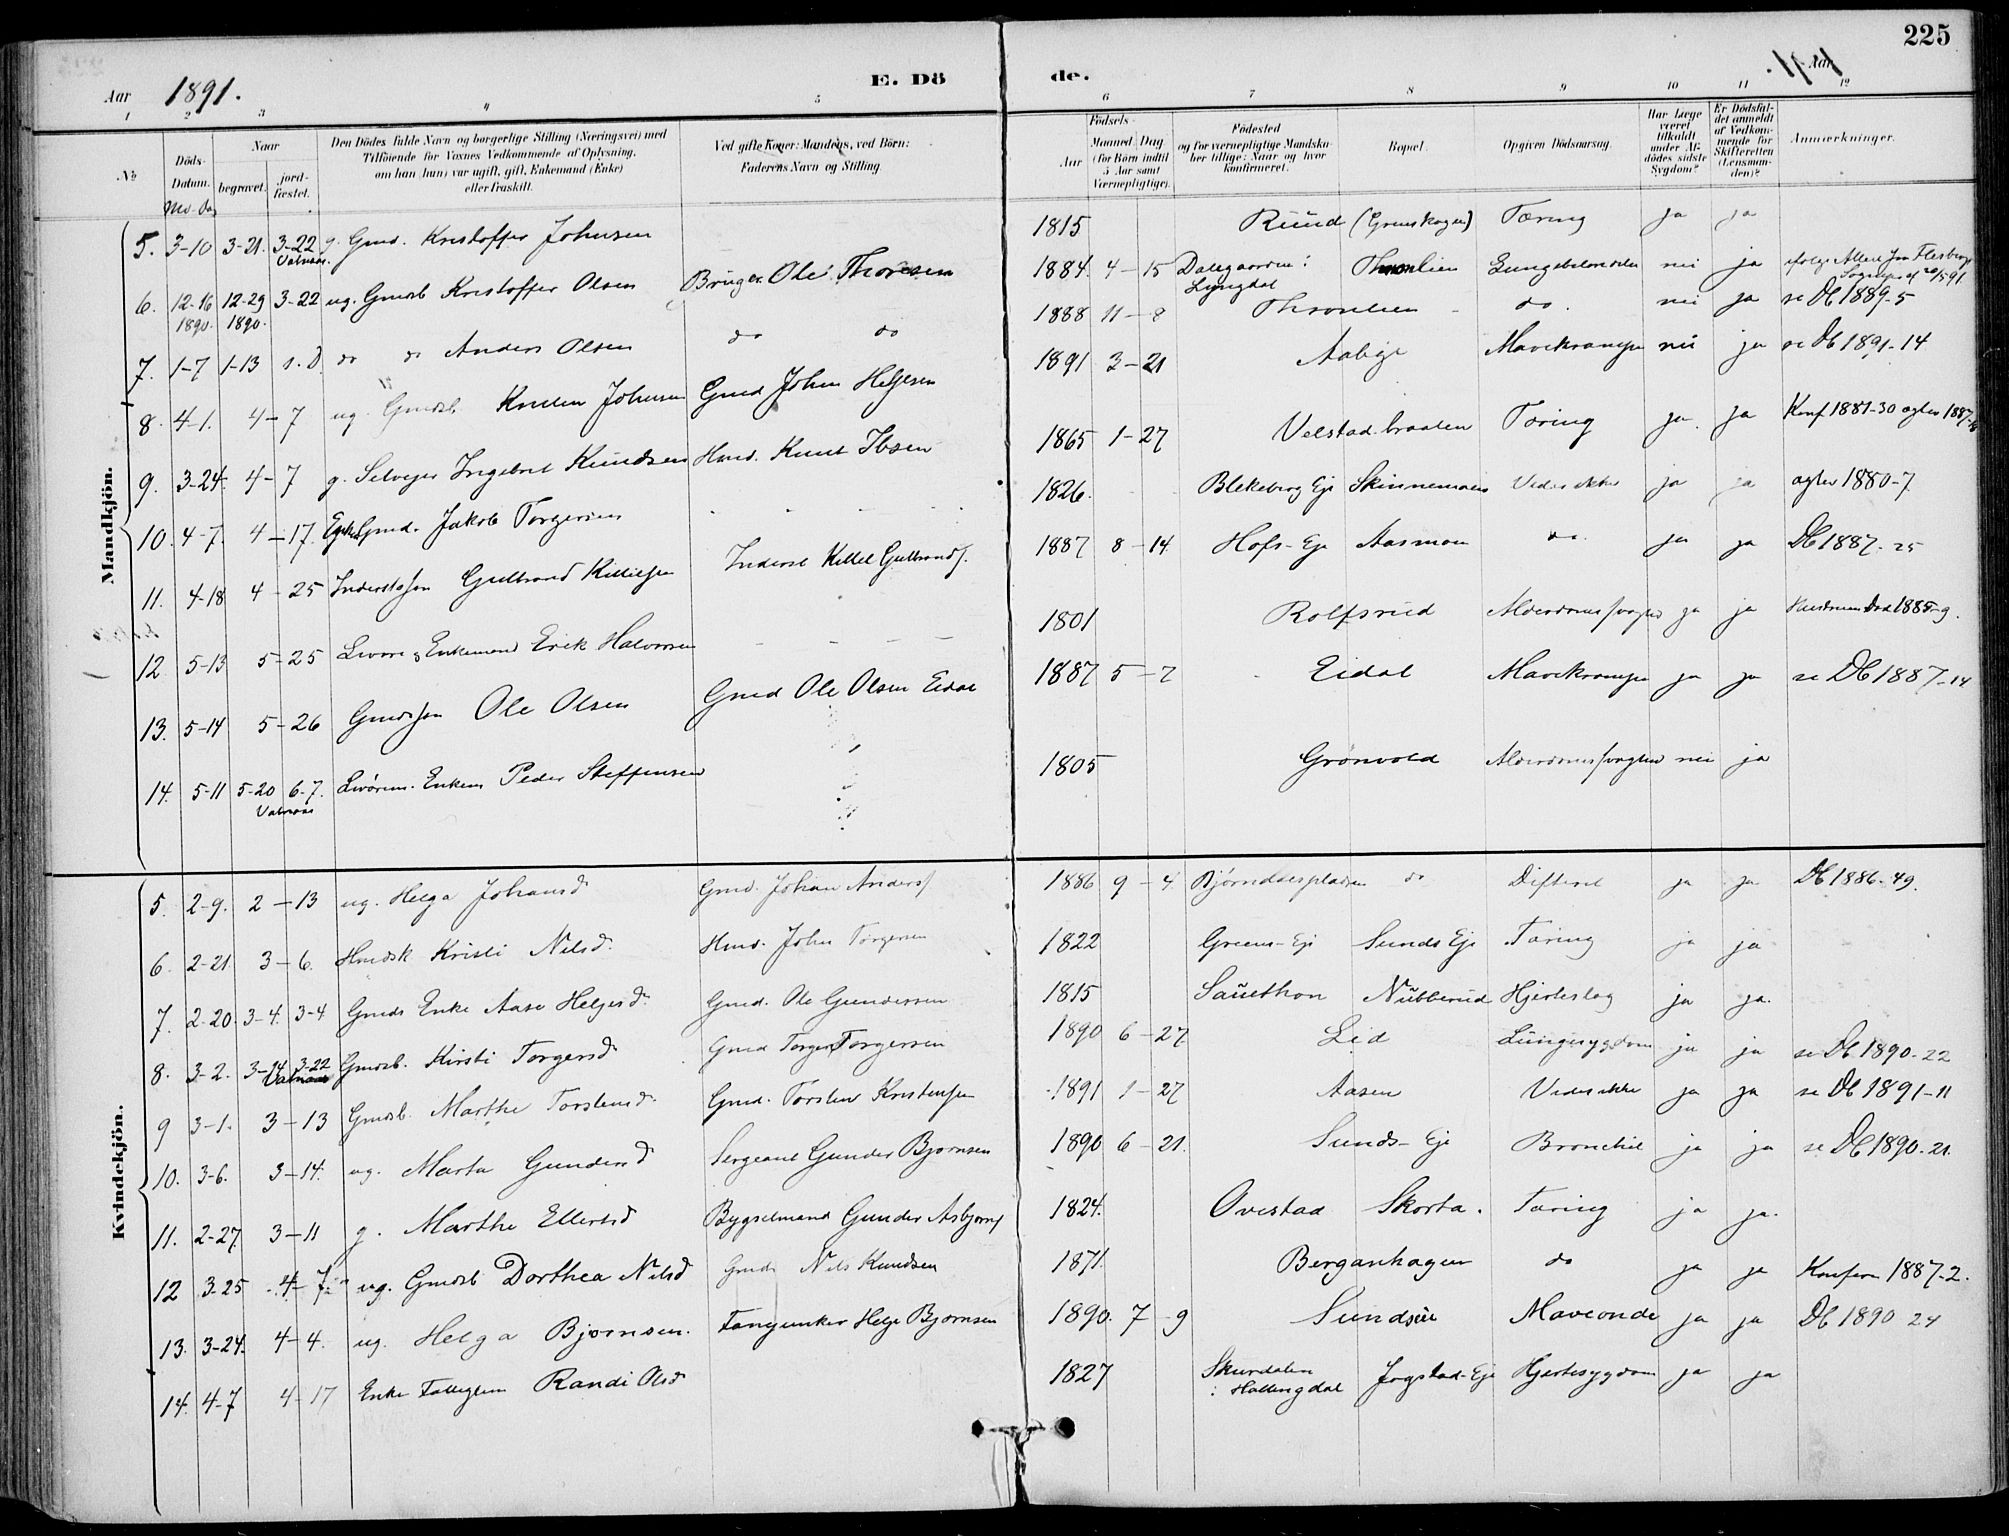 225
Aar 1891. E. Dö de. Aar 1891.
1 2 3 4 5 6 7 8 9 10 11 12
No Döds-Datum. Naar begravet. jordfæstet. Den Dödes fulde Navn og borgerlige Stilling (Næringsvei) med Tilföiende for Voxnes Vedkommende af Oplysning, om han (hun) var ugift, gift, Enkemand (Enke) eller fraskilt. Ved gifte Koner: Mandens, ved Börn: Faderens Navn og Stilling. Födsels- Aar Maaned Dag (for Börn indtil 5 Aar samt Værnepligtige). Födested og for værnepligtige Mandskaber tillige: Naar og hvor konfirmeret. Bopæl. Opgiven Dödsaarsag. Har Læge været tilkaldt under Afdödes sidste Sygdom? Er Dödsfaldet anmeldt af Vedkommende for Skifteretten (Lensmanden)? Anmærkninger.
Mo-Dag
Mandkjön.
5. 3-10 3-21. 3-22 g. Gmd. Kristoffer Johnsen 1815 Ruud (Grønskogen) Tæring ja ja
6. 12-16 1890. 12-29 1890. 3-22 ug. Gmdsb Kristoffer Olsen Bruger Ole Thoresen 1884. 4-15 Dalegaarden i Lyngdal Thronlien nei ja
7. 1-7 1-13 s. D. do do Anders Olsen do do 1888 11-8 Thronlien do. nei ja se Db 1889-5
8. 4-1. 4-7 ug. Gmdsb. Johnsen Gmd John Helgesen 1891 3-21 Aabige Mavekrampe nei ja se Db 1891-14
9. 3-24. 4-7 g. Selveier Ingebret Knudsen Hmd. Knut Ibsen 1865 1-27 Velstadbraaten Tæring ja. ja Konf 1881-30 agter 1887
10. 4-7. 4-17. Gmd. Jakob Torgersen 1826. Blekeberg Eje Skinnemoen Vides ikke ja ja agter 1880-7
11. 4-18 4-25 Inderstsøn Gulbrand Kittelsen Inderst Kittel Gulbrands. 1887 8-14. Hofs-Eje Aasmoen do. ja ja Db 1887-25
12 5-13 5-25 Enkemand Erik Halvorsen 1801 Rolfsrud Alderdomssvaghed ja ja
13. 5-14 5-26 Gmdssøn Ole Olsen Gmd Ole Olsen Eidal 1887 5-7 Eidal Mavekrampe ja ja se Db 1887-14
14. 5-11 5-20 6-7. Peder Steffensen 1805 Grönvold Alderdomssvaghed nei ja
Kvindekjön.
5. 2-9. 2-13 ug. Helga Johansd. Gmd. Johan Anders. 1886 9-4. do Difterit ja ja Db 1886-49.
6. 2-21. 3-6. Kristi Nilsd. Hmd. John Torgersen 1822 Greens-Eje Sunds Eje Tæring ja ja
7. 2-20. 3-4. 3-4 Gmds Enke Aase Helgesd. Gmd. Ole Gundersen 1815 Sauethon Nubberud Hjerteslag ja ja.
8. 3-2. 3-14 3-22 Gmdsb. Kirsti Torgersd. Gmd Torger Torgersen 1890 6-27 Lid Lungesygdom ja ja se Db 1890-22
9 3-1. 3-13 Gmdsb. Marthe Torstensd. Gmd. Torsten Kristensen 1891 1-27 Aasen Vides ikke ja ja se Db 1891-11
10. 3-6. 3-14. ug. Marta Gundersd Sergeant Gunder Bjørnsen 1890 6-21. Sunds-Eje Bronchit ja ja se Db 1890-21.
11. 2-27. 3-11 g. Marthe Ellertsd Bygselmand Gunder Asbjørns 1824. Ovestad Skorta. Tæring ja ja.
12 3-25 4-7 ug. Gmdsb Dorthea Nilsd Gmd Nils Knudsen 1871. Berganhagen do ja ja Konferer 1887-2.
13. 3-24. 4-4. ug. Helga Bjørnsen. Fanejunker Helge Bjørnsen 1890. 7-9 Maveonde ja ja Db 1890 24
14. 4-7 4-17 Enke Randi Olsd 1827 Skurdalen i Hallingdal Jogstad-Eje Hjertesygdom ja ja